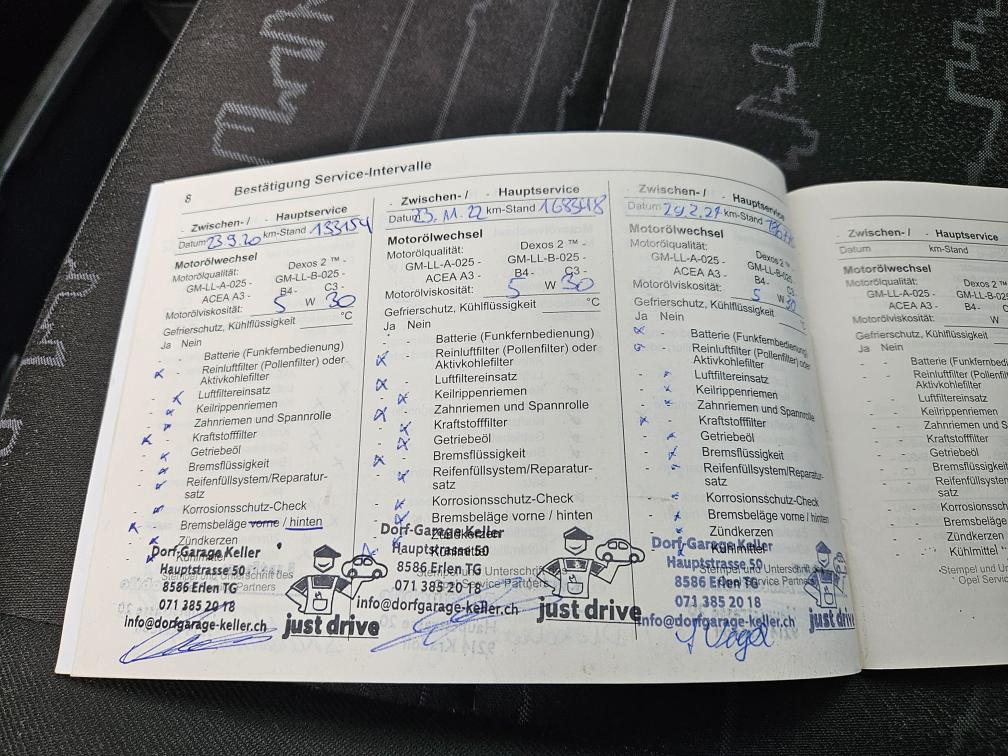 8 Bestätigung Service-Intervalle
Zwischen- / - Hauptservice
Datum 23.9.20 km-Stand 133154
Motorölwechsel
Motorölqualität: Dexos 2 ™ -
GM-LL-A-025 - GM-LL-B-025-
ACEA A3 - B4- C3-
Motorölviskosität: 5 W 30
Gefrierschutz, Kühlflüssigkeit °C
Ja Nein
- - Batterie (Funkfernbedienung)
x - Reinluftfilter (Pollenfilter) oder
Aktivkohlefilter
- x Luftfiltereinsatz
- x Keilrippenriemen
- x Zahnriemen und Spannrolle
x - Kraftstofffilter
- x Getriebeöl
- x Bremsflüssigkeit
- x Reifenfüllsystem/Reparatur-
satz
- x Korrosionsschutz-Check
x - Bremsbeläge vorne / hinten
x Zündkerzen
Kühlmittel
Stempel und Unterschrift des
Partners
Dorf-Garage Keller
Hauptstrasse 50
8586 Erlen TG
071 385 20 18
info@dorfgarage-keller.ch
just drive
Zwischen- / - Hauptservice
Datum 23.11.22 km-Stand 168348
Motorölwechsel
Motorölqualität: Dexos 2 ™ -
GM-LL-A-025 - GM-LL-B-025-
ACEA A3 - B4- C3-
Motorölviskosität: 5 W 30
Gefrierschutz, Kühlflüssigkeit °C
Ja Nein
- - Batterie (Funkfernbedienung)
x - Reinluftfilter (Pollenfilter) oder
Aktivkohlefilter
x - Luftfiltereinsatz
- x Keilrippenriemen
x - Zahnriemen und Spannrolle
- x Kraftstofffilter
- x Getriebeöl
x - Bremsflüssigkeit
- - Reifenfüllsystem/Reparatur-
satz
- x Korrosionsschutz-Check
- x Bremsbeläge vorne / hinten
Zündkerzen
Kühlmittel
Stempel und Unterschrift
Opel Service Partners
Dorf-Garage Keller
Hauptstrasse 50
8586 Erlen TG
071 385 20 18
info@dorfgarage-keller.ch
just drive
Zwischen- / - Hauptservice
Datum km-Stand
Motorölwechsel
Motorölqualität: Dexos 2 ™
GM-LL-A-025 - GM-LL-B-025-
ACEA A3 - B4- C3-
Motorölviskosität: 5 W 30
Gefrierschutz, Kühlflüssigkeit
Ja Nein
Batterie (Funkfernbedienung)
Reinluftfilter (Pollenfilter) oder
Aktivkohlefilter
- x Luftfiltereinsatz
- x Keilrippenriemen
- x Zahnriemen und Spannrolle
x - Kraftstofffilter
- x Getriebeöl
- x Bremsflüssigkeit
- - Reifenfüllsystem/Reparatur-
satz
- x Korrosionsschutz-Check
- x Bremsbeläge vorne / hinten
Zündkerzen
Kühlmittel
Stempel und Unterschrift des
Opel Service Partners
Dorf-Garage Keller
Hauptstrasse 50
8586 Erlen TG
071 385 20 18
info@dorfgarage-keller.ch
just drive
Zwischen- / - Hauptservice
Datum km-Stand
Motorölwechsel
Motorölqualität: Dexos 2 ™
GM-LL-A-025 - GM-LL-B-02
ACEA A3 - B4- C
Motorölviskosität: W
Gefrierschutz, Kühlflüssigkeit
Ja Nein
- - Batterie (Funkfernbe
- - Reinluftfilter (Pollenfil
Aktivkohlefilter
- - Luftfiltereinsatz
- - Keilrippenriemen
- - Zahnriemen und S
- - Kraftstofffilter
- - Getriebeöl
- - Bremsflüssigkeit
- - Reifenfüllsystem
satz
- - Korrosionsschutz
- - Bremsbeläge vo
- - Zündkerzen
- - Kühlmittel
Stempel und Un
Opel Service